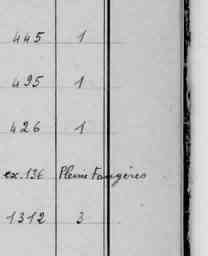 445 1
495 1
426 1
ex. 136 Pleine Fougères
1312 3